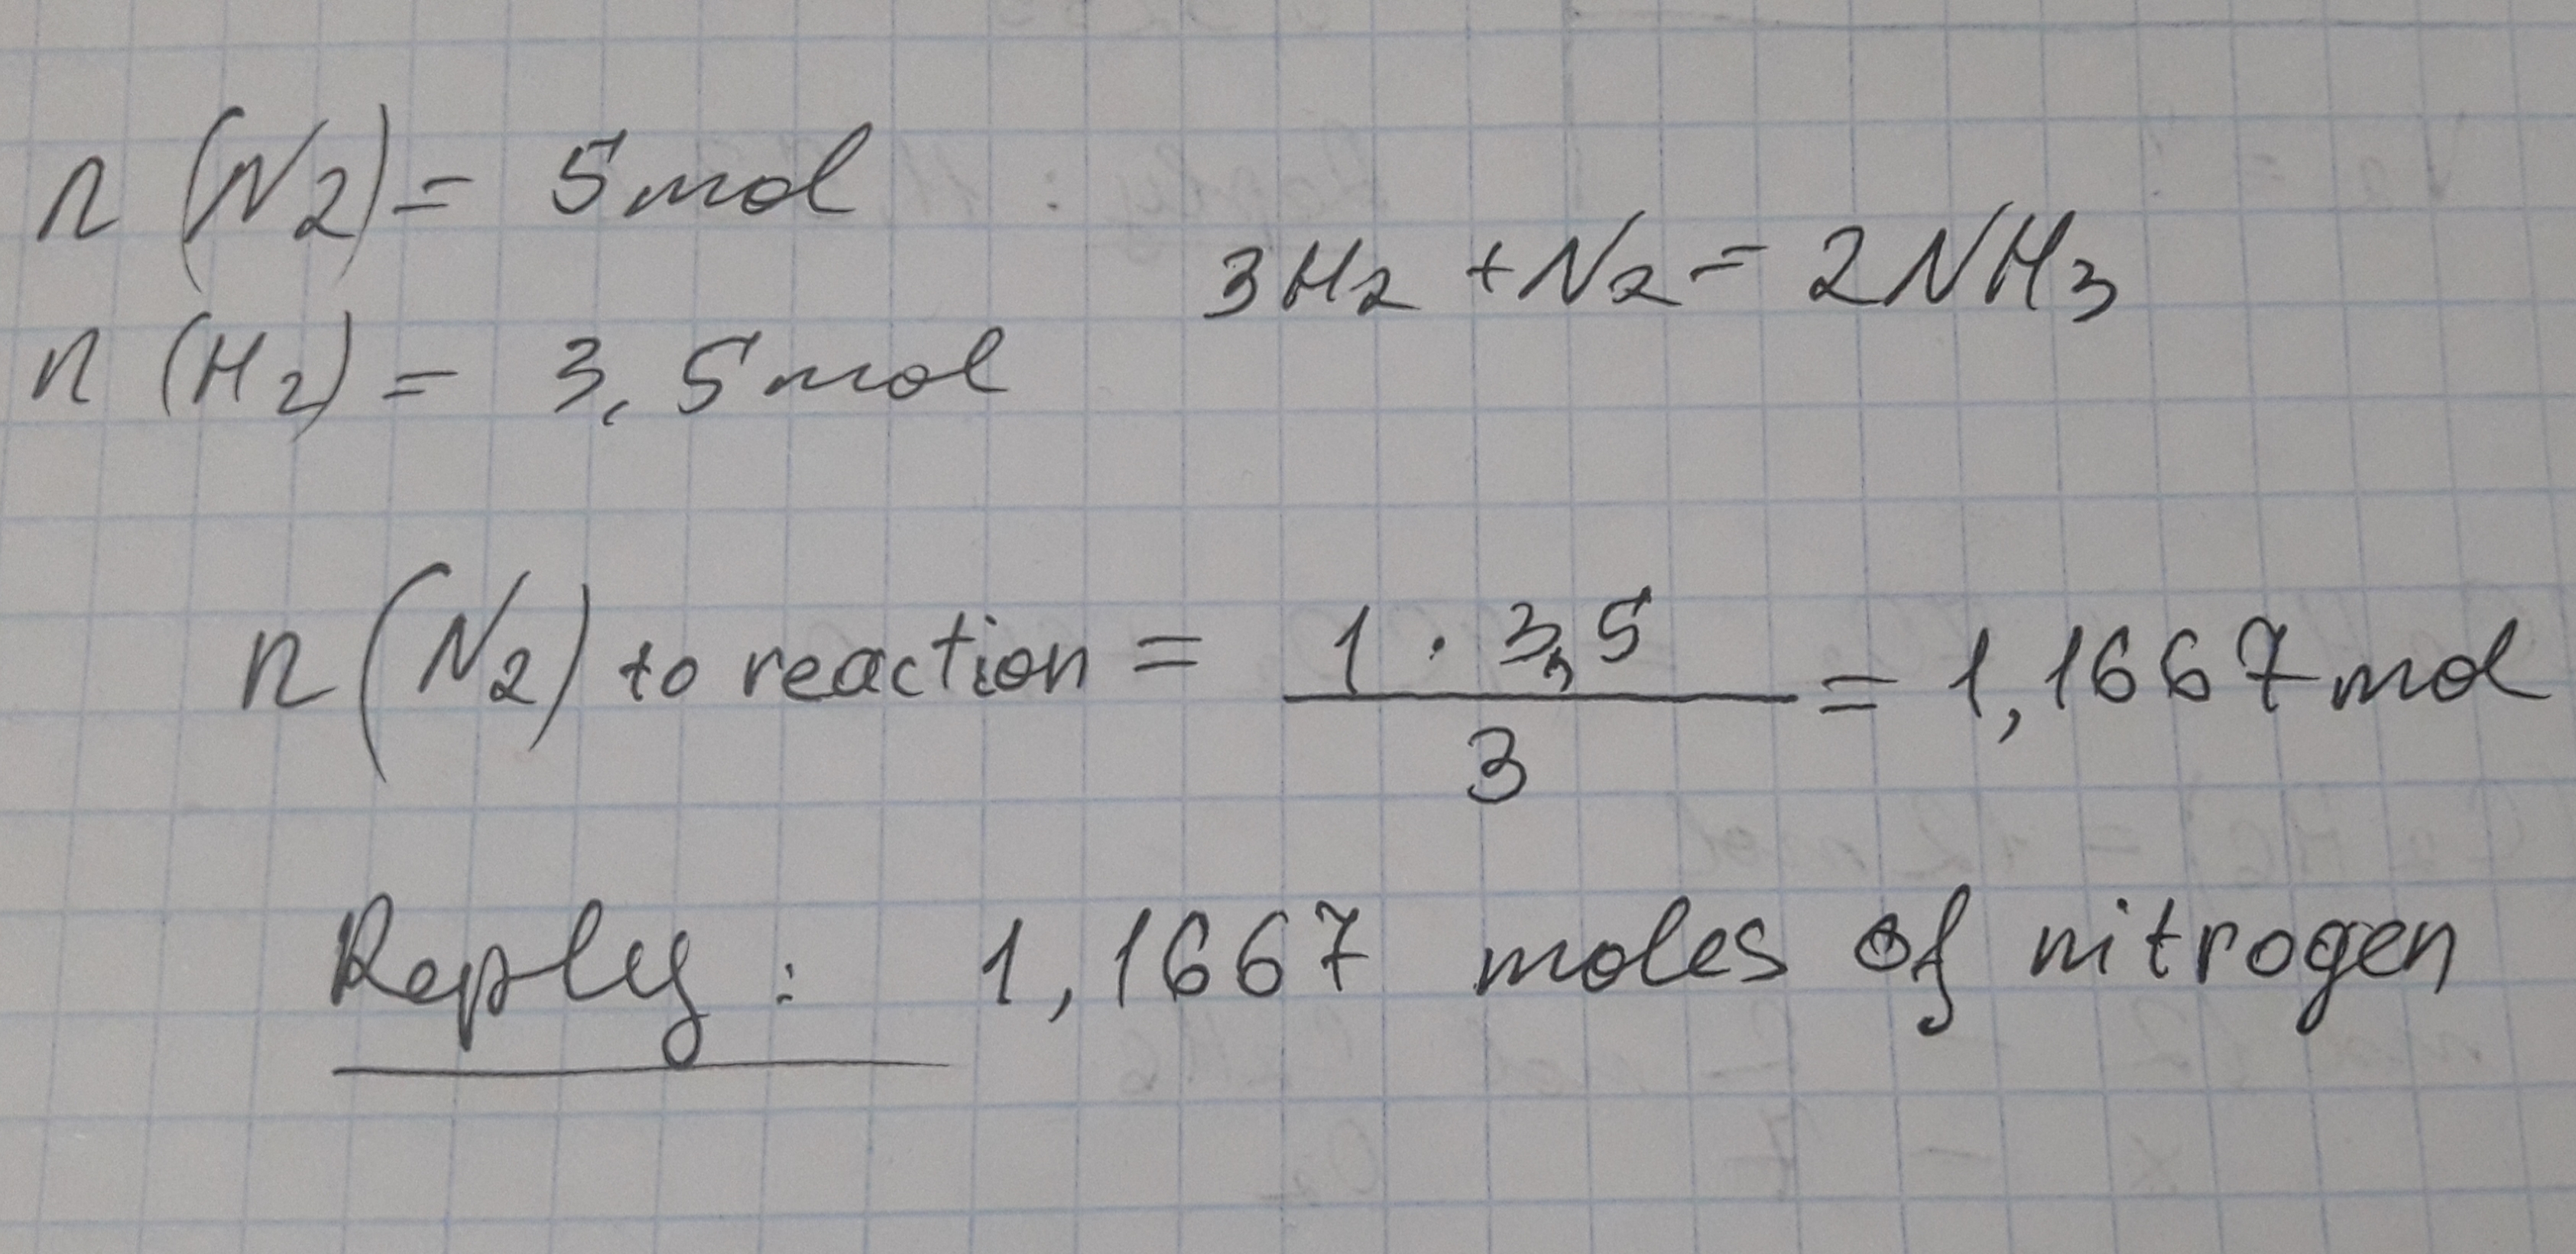 n (N2) = 5 mol
3H2 + N2 = 2NH3
n (H2) = 3,5 mol
n (N2) to reaction = 1 · 3,5 / 3 = 1,1667 mol
Reply: 1,1667 moles of nitrogen